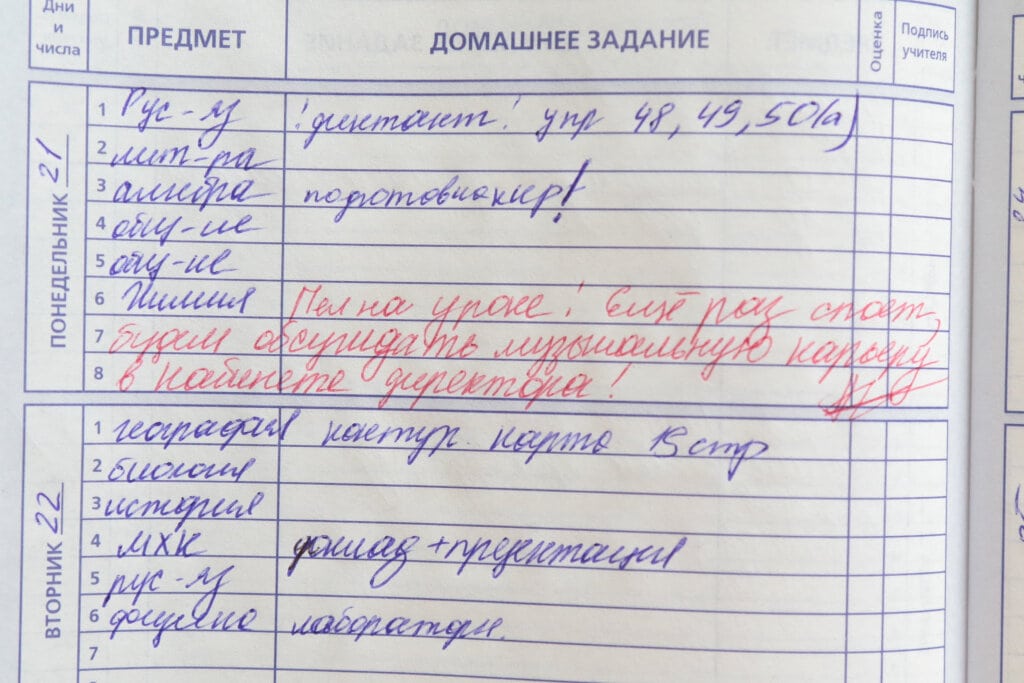 Дни и числа ПРЕДМЕТ ДОМАШНЕЕ ЗАДАНИЕ Оценка Подпись учителя
ПОНЕДЕЛЬНИК 21
1 Рус-яз !диктант! упр 48, 49, 50(а)
2 лит-ра
3 алгебра подготов на к/р!
4 общ-ие
5 общ-ие
6 Химия Пел на уроке! Ещё раз споет,
7 будем обсуждать музыкальную карьеру
8 в кабинете директора!
ВТОРНИК 22
1 география контур. карта 13 стр
2 биология
3 история
4 МХК доклад + презентация
5 рус-яз
6 физика лаборатори.
7